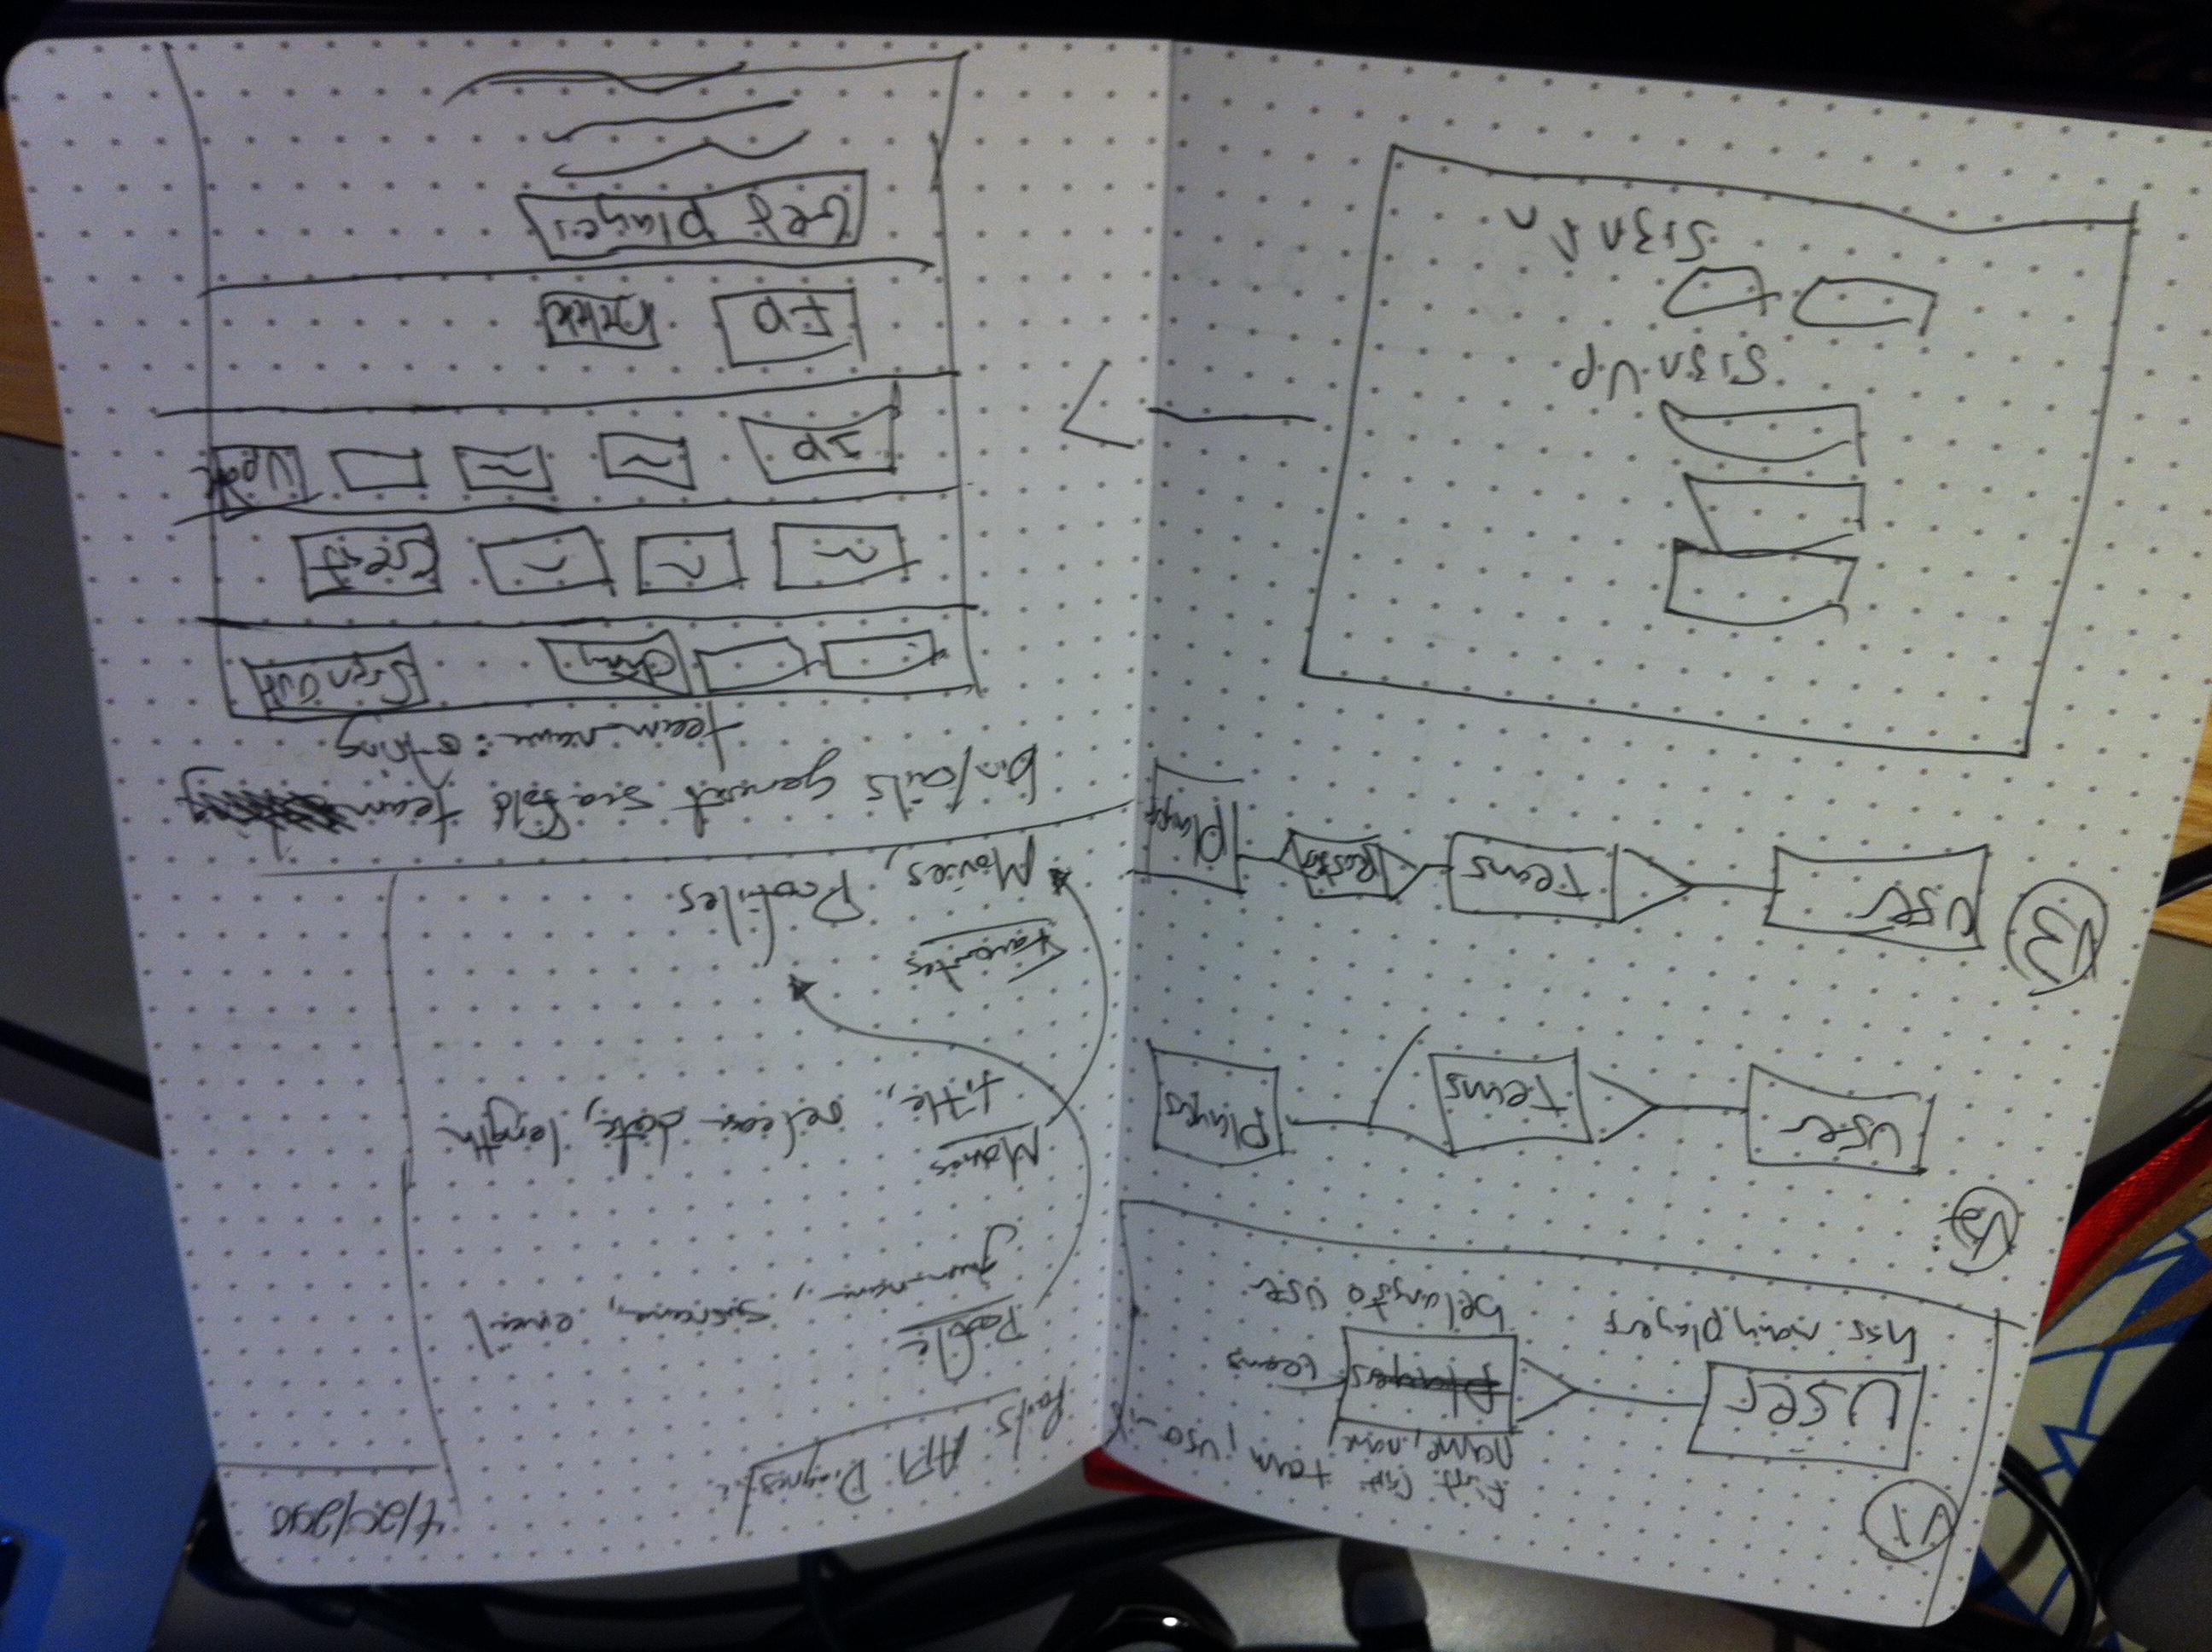 V1
first last team, user_id
name, name,
User
Players
teams
has many players
belongs to user
V2
User
Teams
Players
V3
User
Teams
Roster
Players
Sign Up
Sign In
4/20/
Rails API Diagnostic
Profile
given_name, surname, email
Movies
title, release date, length
Favorites
Movies, Profiles
bin/rails generat scaffold team
team_name: string
Sign Out
Creat
ID
Update
ID
Delete
Get players